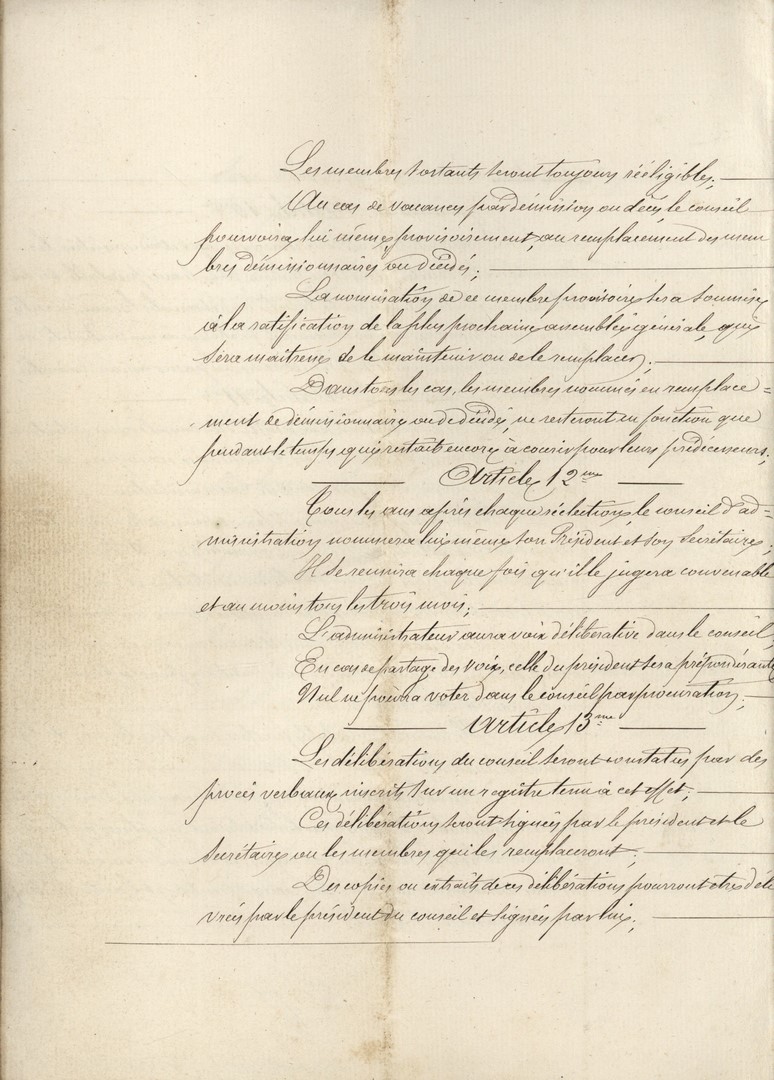 Les membres sortants seront toujours rééligibles;
Au cas de vacances par démission ou décès le conseil
pourvoira lui même, provisoirement, au remplacement des mem
bres démissionnaires ou décédés;
La nomination de ce membre provisoire sera soumise
à la ratification de la plus prochaine assemblée générale, qui
sera maîtresse de le maintenir ou de le remplacer;
Dans tous les cas, les membres nommés en remplace=
ment de démissionnaires ou de décédés, ne resteront en fonction que
pendant le temps qui restait encore à courir pour leurs prédécesseurs;
Article 12me
Tous les ans après chaque réélection, le conseil d'ad=
ministration nommera lui même son Président et son Secrétaire;
Il se reunira chaque fois qu'il le jugera convenable
et au moins tous les trois mois;
L'administrateur aura voix délibérative dans le conseil,
En cas de partage des voix, celle du président sera prépondérante
Nul ne pourra voter dans le conseil par procuration;
Article 13me
Les délibérations du conseil seront constatées par des
procès verbaux inscrits sur un registre tenu à cet effet;
Ces délibérations seront signées par le président et le
secrétaire ou les membres qui les remplaceront;
Des copies ou extraits de ces délibérations pourront être déli
vrées par le président du conseil et signées par lui;